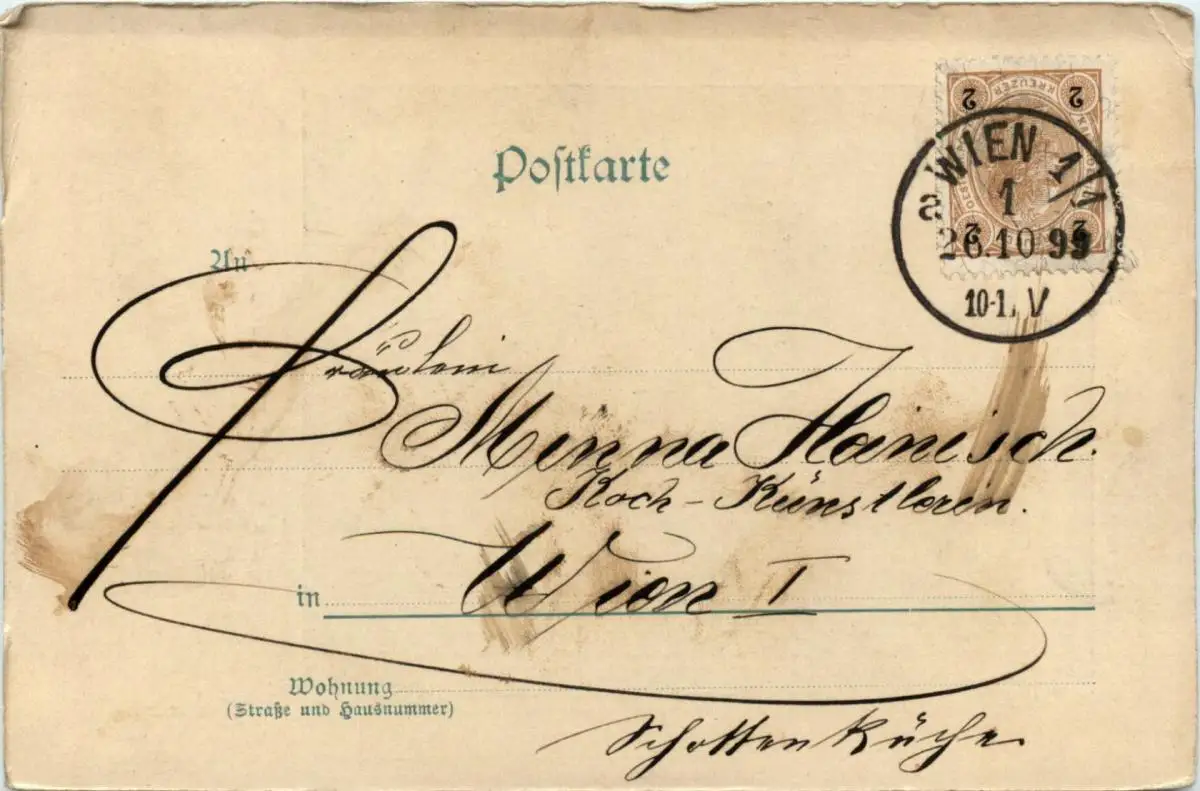 Postkarte
2 KREUZER 2
2 2
WIEN 1/1
2
1
26.10 99
V
An
Fräulein
Minna Hanisch.
Koch-Künstlerin.
in Wien I
Wohnung
(Straße und Hausnummer)
Schottenküche